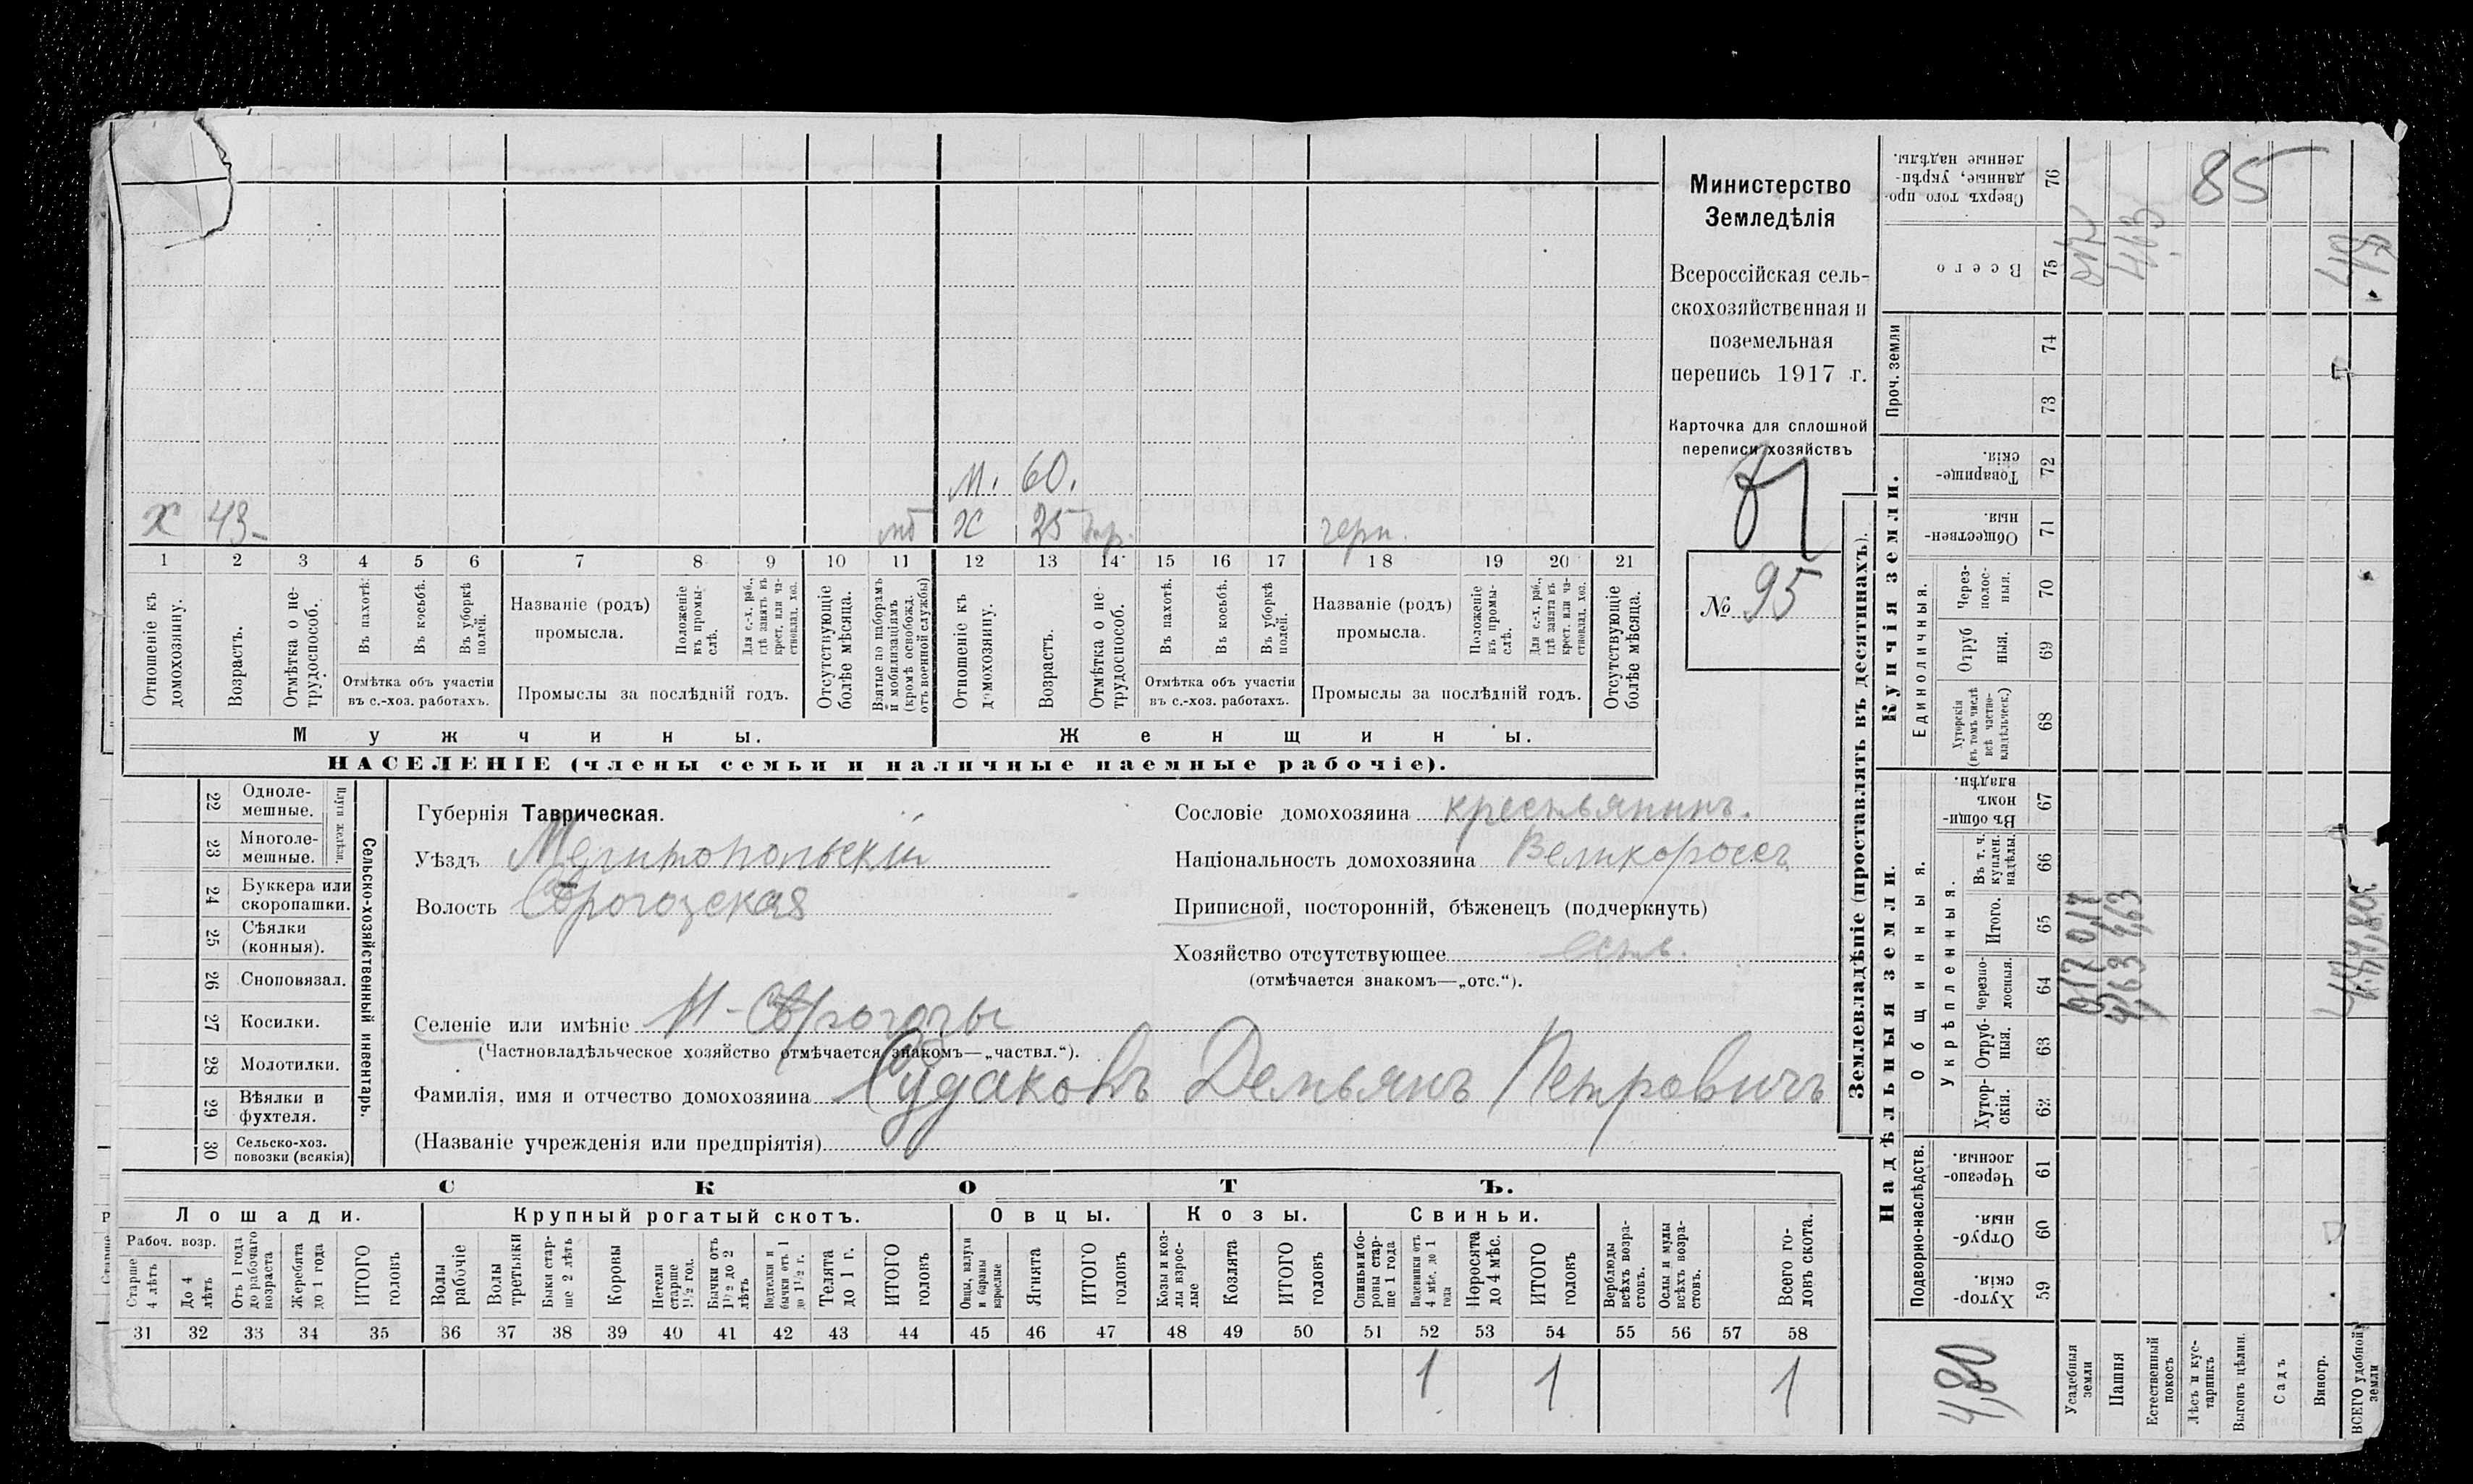 Министерство
Земледѣлія
Всероссійская сель-
скохозяйственная и
поземельная
перепись 1917 г.
Карточка для сплошной
переписи хозяйствъ
№ 95
М. 60.
Х 43
мб Ж 25
1 2 3 4 5 6 7 8 9 10 11 12 13 14 15 16 17 18 19 20 21
Отношеніе къ домохозяину.
Возрастъ.
Отмѣтка о не-трудоспособ.
Въ пахотѣ.
Въ косьбѣ.
Въ уборкѣ полей.
Отмѣтка объ участіи
въ с.-хоз. работахъ.
Названіе (родъ)
промысла.
Положеніе въ промы-слѣ.
Для с.-х. раб., гдѣ занятъ въ крест. или ча-стновлад. хоз.
Промыслы за послѣдній годъ.
Отсутствующіе болѣе мѣсяца.
Взятые по наборамъ и мобилизаціямъ (кромѣ освобожд. отъ военной службы)
Отношеніе къ домохозяину.
Возрастъ.
Отмѣтка о не-трудоспособ.
Въ пахотѣ.
Въ косьбѣ.
Въ уборкѣ полей.
Отмѣтка объ участіи
въ с.-хоз. работахъ.
Названіе (родъ)
промысла.
Положеніе въ промы-слѣ.
Для с.-х. раб., гдѣ занята въ крест. или ча-стновлад. хоз.
Промыслы за послѣдній годъ.
Отсутствующіе болѣе мѣсяца.
Мужчины.
Женщины.
НАСЕЛЕНІЕ (члены семьи и наличные наемные рабочіе).
22 Одноле-мешные.
23 Многоле-мешные.
Плуги желѣзн.
24 Буккера или скоропашки.
25 Сѣялки (конныя).
26 Сноповязал.
27 Косилки.
28 Молотилки.
29 Вѣялки и фухтеля.
30 Сельско-хоз. повозки (всякія)
Сельско-хозяйственный инвентарь.
Губернія Таврическая.
Уѣздъ Мелитопольскій
Волость
Селеніе или имѣніе
(Частновладѣльческое хозяйство отмѣчается знакомъ—„частвл.“).
Фамилія, имя и отчество домохозяина Судаковъ Демьянъ Петровичъ
(Названіе учрежденія или предпріятія)
Сословіе домохозяина крестьянинъ.
Національность домохозяина Великороссъ
Приписной, посторонній, бѣженецъ (подчеркнуть)
Хозяйство отсутствующее
(отмѣчается знакомъ—„отс.“).
СКОТЪ.
Лошади. Крупный рогатый скотъ. Овцы. Козы. Свиньи.
Рабоч. возр.
Старше 4 лѣтъ
До 4 лѣтъ
Отъ 1 года до рабочаго возраста
Жеребята до 1 года
ИТОГО головъ
Волы рабочіе
Волы третьяки
Быки стар-ше 2 лѣтъ
Коровы
Нетели старше 1½ год.
Бычки отъ 1½ до 2 лѣтъ
Подтелки и бычки отъ 1 до 1½ г.
Телята до 1 г.
ИТОГО головъ
Овцы, валухи и бараны взрослые
Ягнята
ИТОГО головъ
Козы и коз-лы взрос-лые
Козлята
ИТОГО головъ
Свиньи и бо-ровы стар-ше 1 года
Подсвинки отъ 4 мѣс. до 1 года
Поросята до 4 мѣс.
ИТОГО головъ
Верблюды всѣхъ возра-стовъ.
Ослы и мулы всѣхъ возра-стовъ.
Всего го-ловъ скота.
31 32 33 34 35 36 37 38 39 40 41 42 43 44 45 46 47 48 49 50 51 52 53 54 55 56 57 58
1 1 1
Землевладѣніе (проставлять въ десятинахъ).
Надѣльныя земли.
Подворно-наслѣдств.
Хутор-скія. 59
Отруб-ныя. 60
Черезпо-лосныя. 61
Общинныя.
Укрѣпленныя.
Хутор-скія. 62
Отруб-ныя. 63
Черезпо-лосныя. 64
Итого. 65
Въ т. ч. куплен. надѣлы. 66
Въ общи-номъ владѣн. 67
Купчія земли.
Единоличныя.
Хуторскія (въ томъ числѣ всѣ частно-владѣльческ.) 68
Отруб ныя. 69
Через-полос-ныя. 70
Обществен-ныя. 71
Товарище-скія. 72
Проч. земли
73 74
Всего 75
Сверхъ того про-данные, укрѣп-ленные надѣлы. 76
Усадебныя земли
Пашня 4,63 4,63
Естественный покосъ
Лѣсъ и кус-тарникъ
Выгонъ цѣлин.
Садъ
Виногр.
ВСЕГО удобной земли
4,80
85